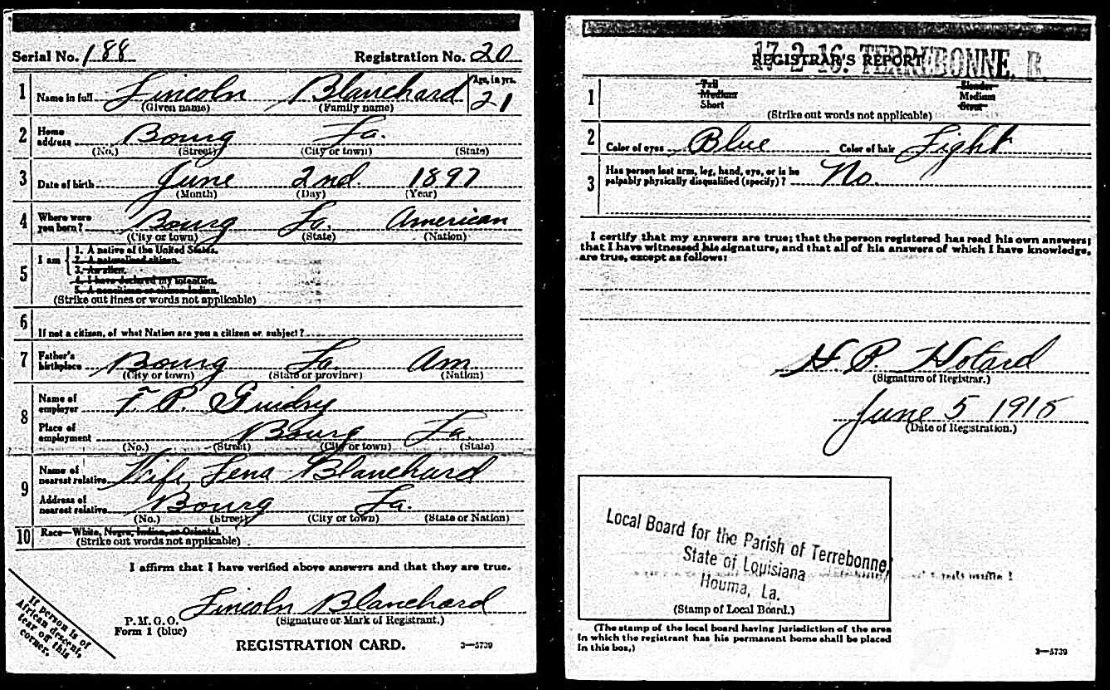 Serial No. 188 Registration No. 20
1 Name in full Lincoln Blanchard Age, in yrs. 21
(Given name) (Family name)
2 Home address Bourg La.
(No.) (Street) (City or town) (State)
3 Date of birth June 2nd. 1897
(Month) (Day) (Year)
4 Where were you born? Bourg La. American
(City or town) (State) (Nation)
5 I am
1. A native of the United States.
2. A naturalized citizen.
3. An alien.
4. I have declared my intention.
5. A noncitizen or citizen Indian.
(Strike out lines or words not applicable)
6
If not a citizen, of what Nation are you a citizen or subject?
7 Father's birthplace Bourg La. Am
(City or town) (State or province) (Nation)
8 Name of employer F. P. Guidry
Place of employment Bourg La.
(No.) (Street) (City or town) (State)
9 Name of nearest relative Wife, Lena Blanchard
Address of nearest relative Bourg La.
(No.) (Street) (City or town) (State or Nation)
10 Race—White, Negro, Indian, or Oriental.
(Strike out words not applicable)
I affirm that I have verified above answers and that they are true.
Lincoln Blanchard
(Signature or Mark of Registrant.)
P. M. G. O.
Form 1 (blue)
REGISTRATION CARD. 3—5739
If person is of
African descent,
tear off this
corner.
17-2-16. TERREBONNE,
REGISTRAR'S REPORT
1
Tall Slender
Medium Medium
Short Stout
(Strike out words not applicable)
2 Color of eyes Blue Color of hair Light
3 Has person lost arm, leg, hand, eye, or is he
palpably physically disqualified (specify)? No.
I certify that my answers are true; that the person registered has read his own answers;
that I have witnessed his signature, and that all of his answers of which I have knowledge,
are true, except as follows:
H P Holard
(Signature of Registrar.)
June 5 1918
(Date of Registration.)
Local Board for the Parish of Terrebonne,
State of Louisiana
Houma, La.
(Stamp of Local Board.)
(The stamp of the local board having jurisdiction of the area
in which the registrant has his permanent home shall be placed
in this box.)
3—5739